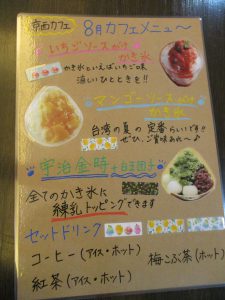 京西カフェ 8月カフェメニュ～
いちごソースがけ
かき氷
かき氷といえばいちご味
涼しいひとときを!!
マンゴーソースがけ
かき氷
台湾の夏の定番らしいです!!
ぜひ、ご賞味あれ～♪
宇治金時+白玉団子
全てのかき氷に
練乳トッピングできます
セットドリンク
コーヒー(アイス・ホット)
梅こぶ茶(ホット)
紅茶(アイス・ホット)